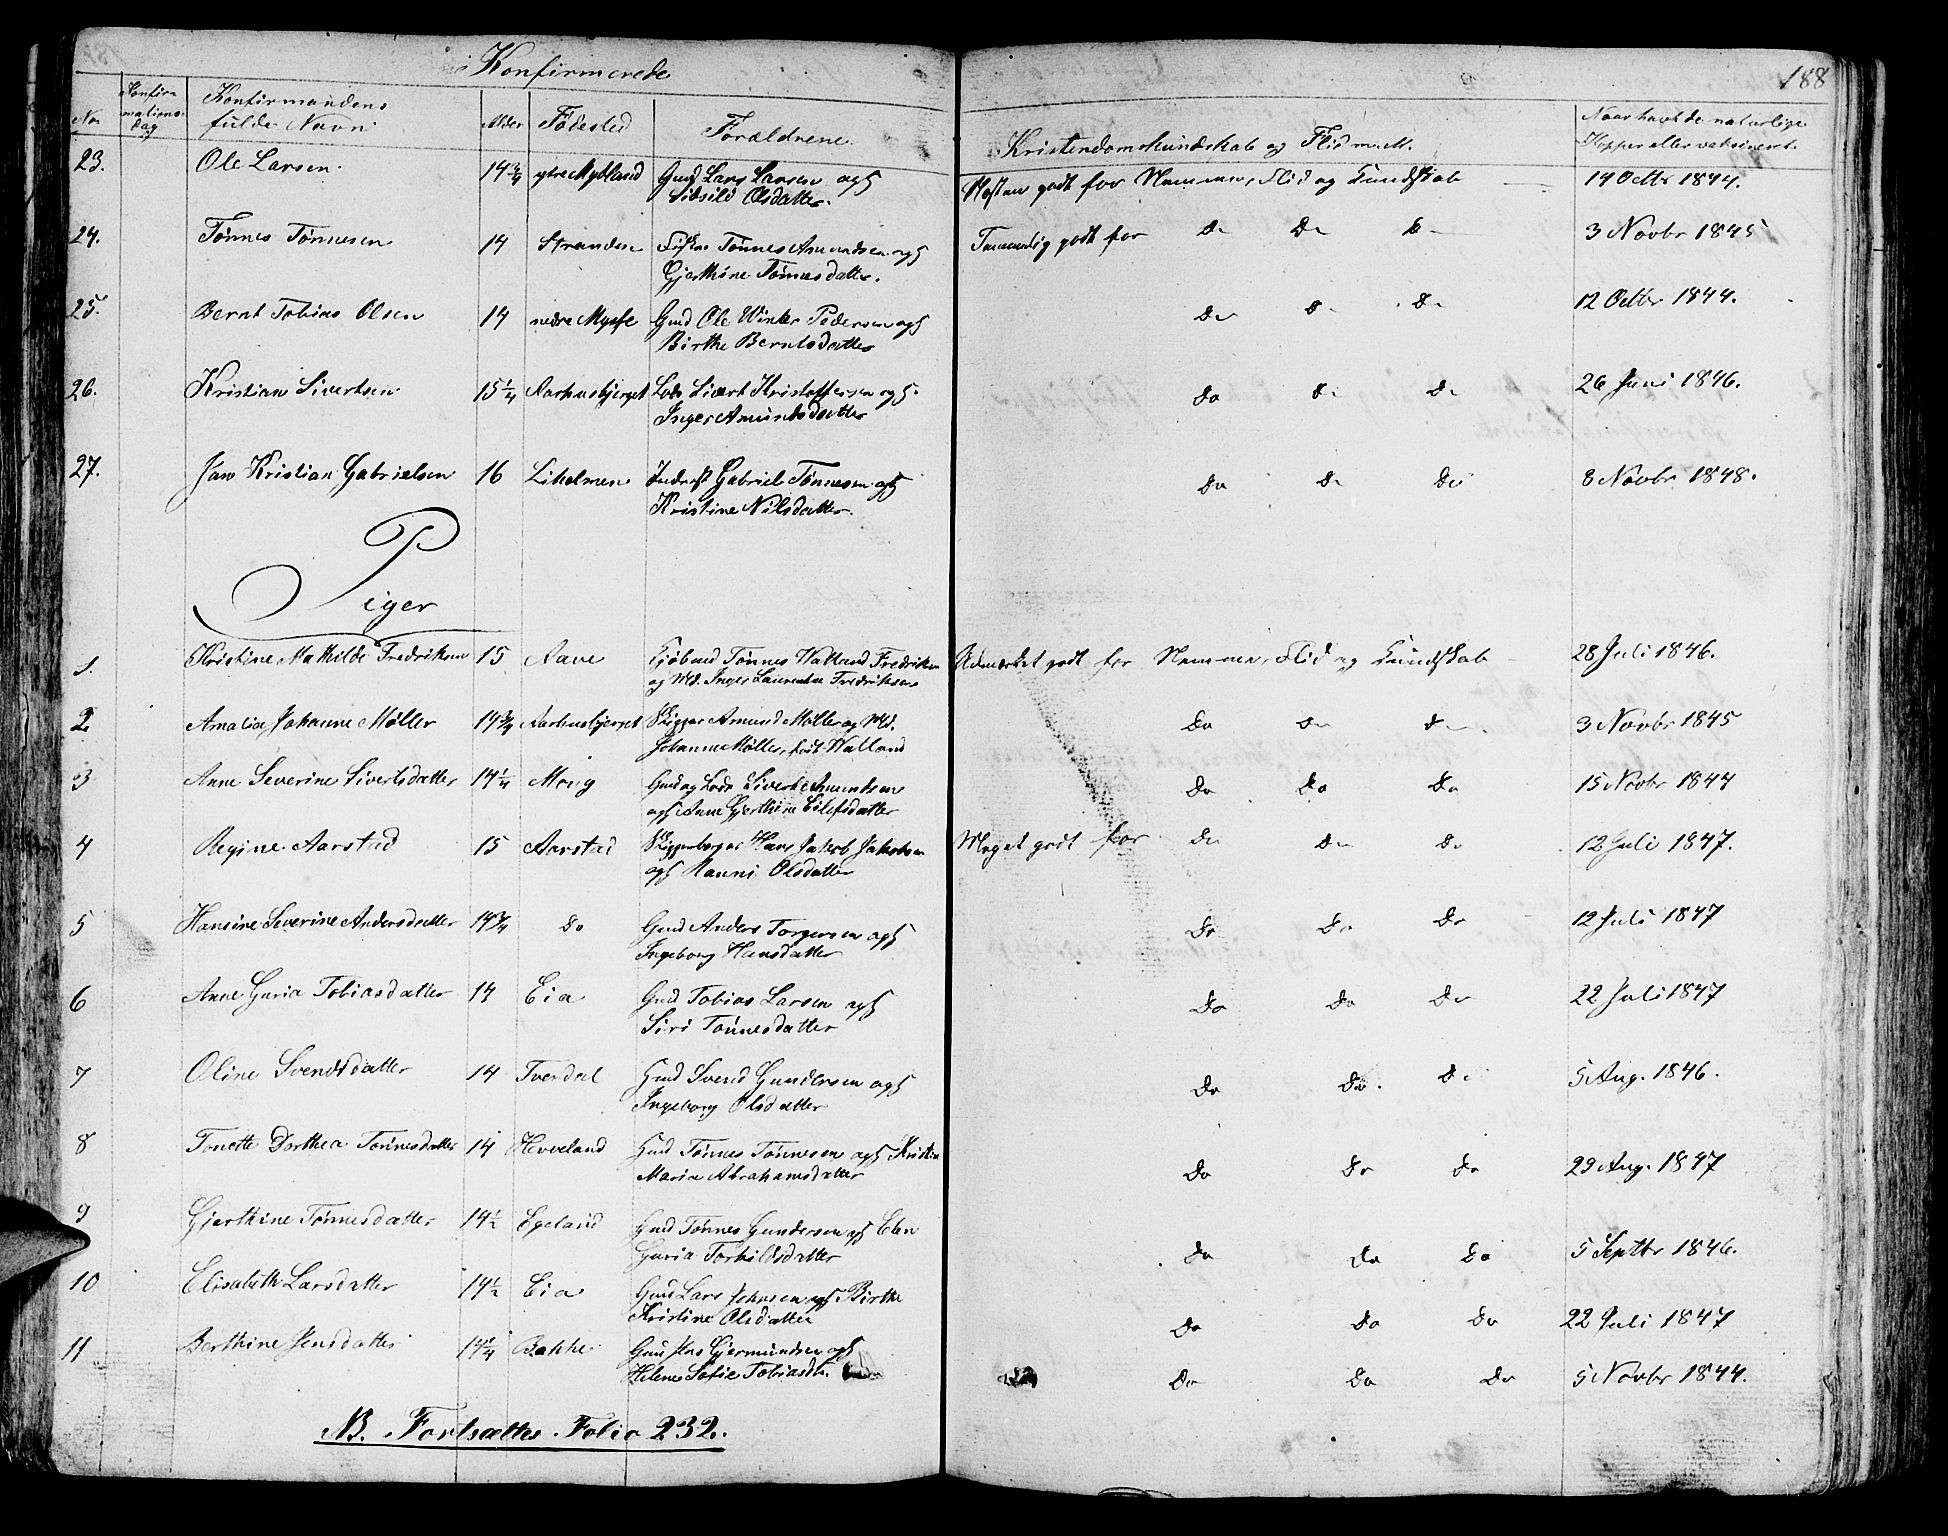 Konfirmerede
188
No
Konfirmations-dag
Konfirmandens fulde Navn
Alder
Fødested
Forældrene
Kristendomskundskab og Flid m. M.
Naar havt de naturlige Kopper eller vaksineret.
23. Ole Larsen. 14 3/4 ytre Mydland Gmd Lars Larsen og H
Sidsele Olsdatter. Næsten godt for Nemmen, Flid og Kundskab 14 Octbr 1844.
24. Tønnes Tønnesen 14 Stranden Tønnes Amundsen og H
Gjerthine Tønnesdatter. Temmelig godt for Do Do Do 3 Novbr 1845
25. Bernt Tobias Olsen 14 nedre Mysse Gmd Ole Winter Pedersen og H
Birthe Berntsdatter Do Do Do 12 Octbr 1844.
26. Kristian Sivertsen 15 1/4 Aarhusbjerget Lods Sivert Kristoffersen og H
Inger Amundsdatter Do Do Do 26 Juni 1846.
27. Jan Kristian Gabrielsen 16 Liholmen Inderst Gabriel Tønnesen og H
Kristine Nilsdatter. Do Do Do 8 Novbr 1848.
Piger
1. Kristine Mathilde Fredriksen 15 Aave Kjøbmd Tønnes Walland Fredriksen
og Md. Inger Laurentse Fredriksen Udmærket godt for Nemmen, Flid og Kundskab 28 Juli 1846.
2 Amalia Johanne Møller 14 3/4 Aarhusbjerget Skipper Amund Møller og Md.
Johanne Møller, født Walland Do Do Do 3 Novbr 1845
3 Anne Severine Sivertsdatter 14 1/4 Moig Gmd og Lods Sivert Amundsen
og H Anne Gjerthine Eilefsdatter Do Do Do 15 Novbr 1844
4 Regine Aarstad 15 Aarstad Skipsbygger Hans Jakob Jakobsen
og H Ranni Olsdatter Meget godt for Do Do Do 12 Juli 1847.
5 Hansine Severine Andersdatter 14 3/4 Do Gmd Anders Torgersen og H
Ingeborg Hansdatter Do Do Do 12 Juli 1847
6 Anne Guria Tobiasdatter 14 Eia Gmd Tobias Larsen og H
Siri Tønnesdatter Do Do Do 22 Juli 1847
7 Oline Svendsdatter 14 Tverdal Gmd Svend Gundersen og H
Ingeborg Olsdatter Do Do. Do 5 Aug. 1846.
8 Tonette Dorthea Tønnesdatter 14 Hoveland Gmd Tønnes Tønnesen og H Kristine
Maria Abrahamsdatter Do Do Do 29 Aug. 1847
9 Gjerthine Tønnesdatter 14 1/2 Egeland Gmd Tønnes Gundersen og H Elen
Guria Torkildsdatter Do Do Do 5 Septbr 1846.
10 Elisabeth Larsdatter 14 1/2 Eia Gmd Lars Johnsen og H Birthe
Kristine Olsdatter Do Do Do 22 Juli 1847
11 Berthine Jensdatter 14 1/4 Bakke Gmd Jens Gjermundsen og H
Helene Sofie Tobiasdtr. Do Do Do 5 Novbr 1844.
NB. Fortsættes Folio 232.